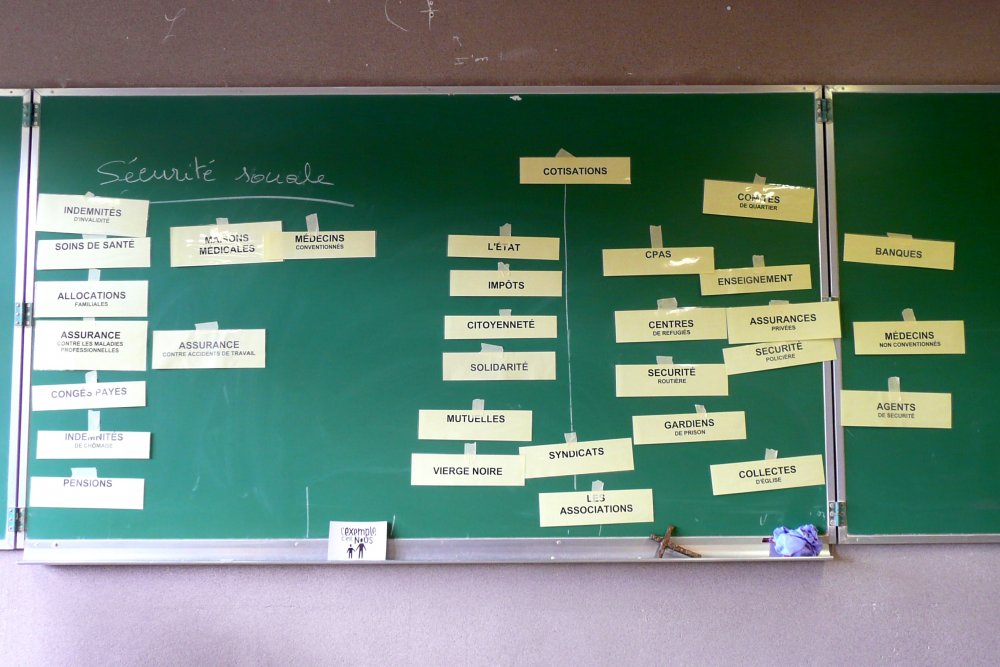 Sécurité sociale
INDEMNITÉS
D'INVALIDITÉ
SOINS DE SANTÉ
ALLOCATIONS
FAMILIALES
ASSURANCE
CONTRE LES MALADIES
PROFESSIONNELLES
CONGÉS PAYES
INDEMNITÉS
DE CHÔMAGE
PENSIONS
MAISONS
MÉDICALES
MÉDECINS
CONVENTIONNÉS
ASSURANCE
CONTRE ACCIDENTS DE TRAVAIL
COTISATIONS
L'ÉTAT
IMPÔTS
CITOYENNETÉ
SOLIDARITÉ
MUTUELLES
VIERGE NOIRE
SYNDICATS
LES
ASSOCIATIONS
COMITÉS
DE QUARTIER
CPAS
ENSEIGNEMENT
CENTRES
DE REFUGIÉS
ASSURANCES
PRIVÉES
SECURITÉ
POLICIÈRE
SECURITÉ
ROUTIÈRE
GARDIENS
DE PRISON
COLLECTES
D'ÉGLISE
BANQUES
MÉDECINS
NON CONVENTIONNÉS
AGENTS
DE SECURITÉ
L'exemple
C'EST NOUS